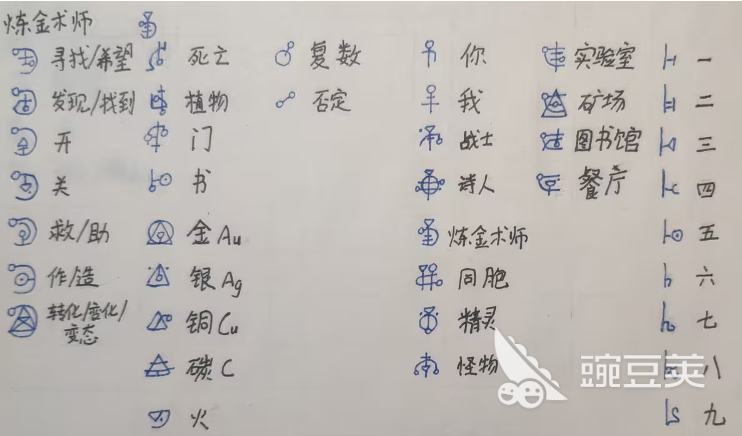 炼金术师
寻找/希望 死亡 复数 你 实验室 一
发现/找到 植物 否定 我 矿场 二
开 门 战士 图书馆 三
关 书 诗人 餐厅 四
救/助 金Au 炼金术师 五
作/造 银Ag 同胞 六
转化/变化/变态 铜Cu 精灵 七
碳C 怪物 八
火 九
豌豆荚